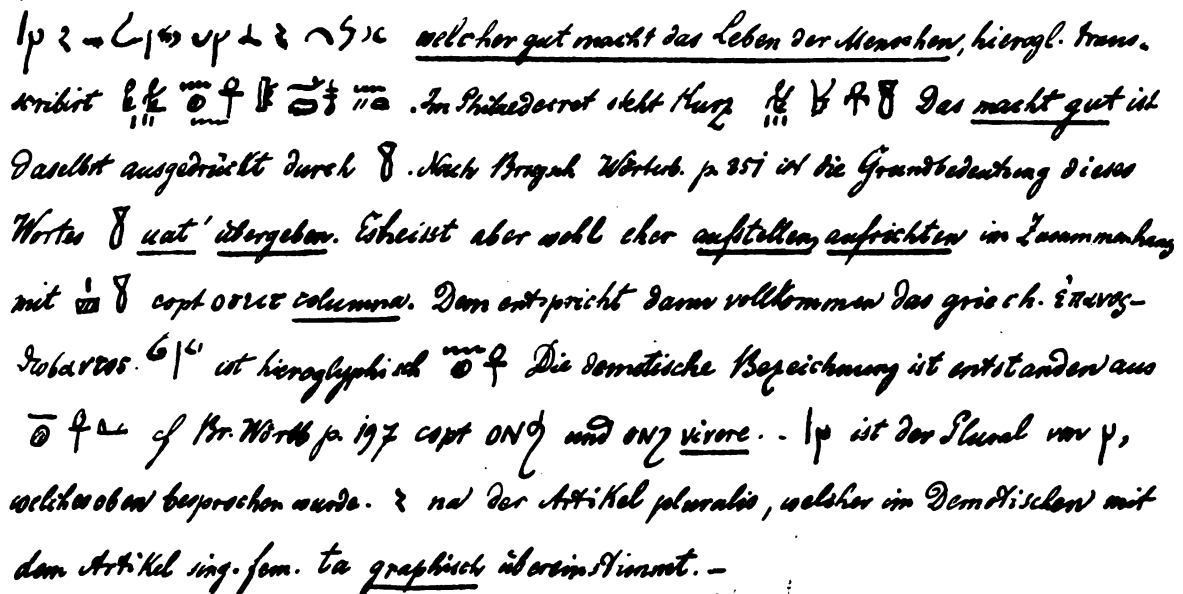 welcher gut macht das Leben der Menschen, hierogl. trans-
skribirt . Im Philaedecret steht kurz Das macht gut ist
daselbst ausgedrückt durch . Nach Brugsch Wörterb. p. 351 ist die Grundbedeutung dieses
Wortes uat' übergeben. Es heisst aber wohl eher aufstellen, aufrichten im Zusammenhang
mit copt ⲟⲩⲉⲓⲧ columna. Dem entspricht dann vollkommen das griech. ἐπανος-
. ist hieroglyphisch Die demotische Bezeichnung ist entstanden aus
cf Br. Wörtb p. 197 copt ⲱⲛϧ und ⲱⲛϩ vivere. - ist der Plural von ,
welches oben besprochen wurde. na der Artikel pluralis, welcher im Demotischen mit
dem Artikel sing. fem. ta graphisch übereinstimmt. –